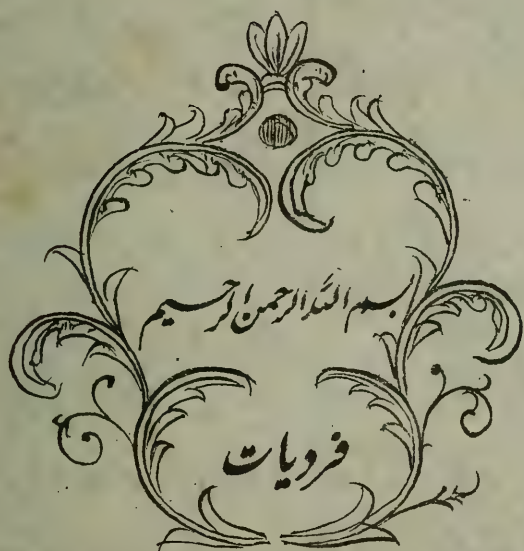 بسم الله الرحمن الرحیم
فردیات